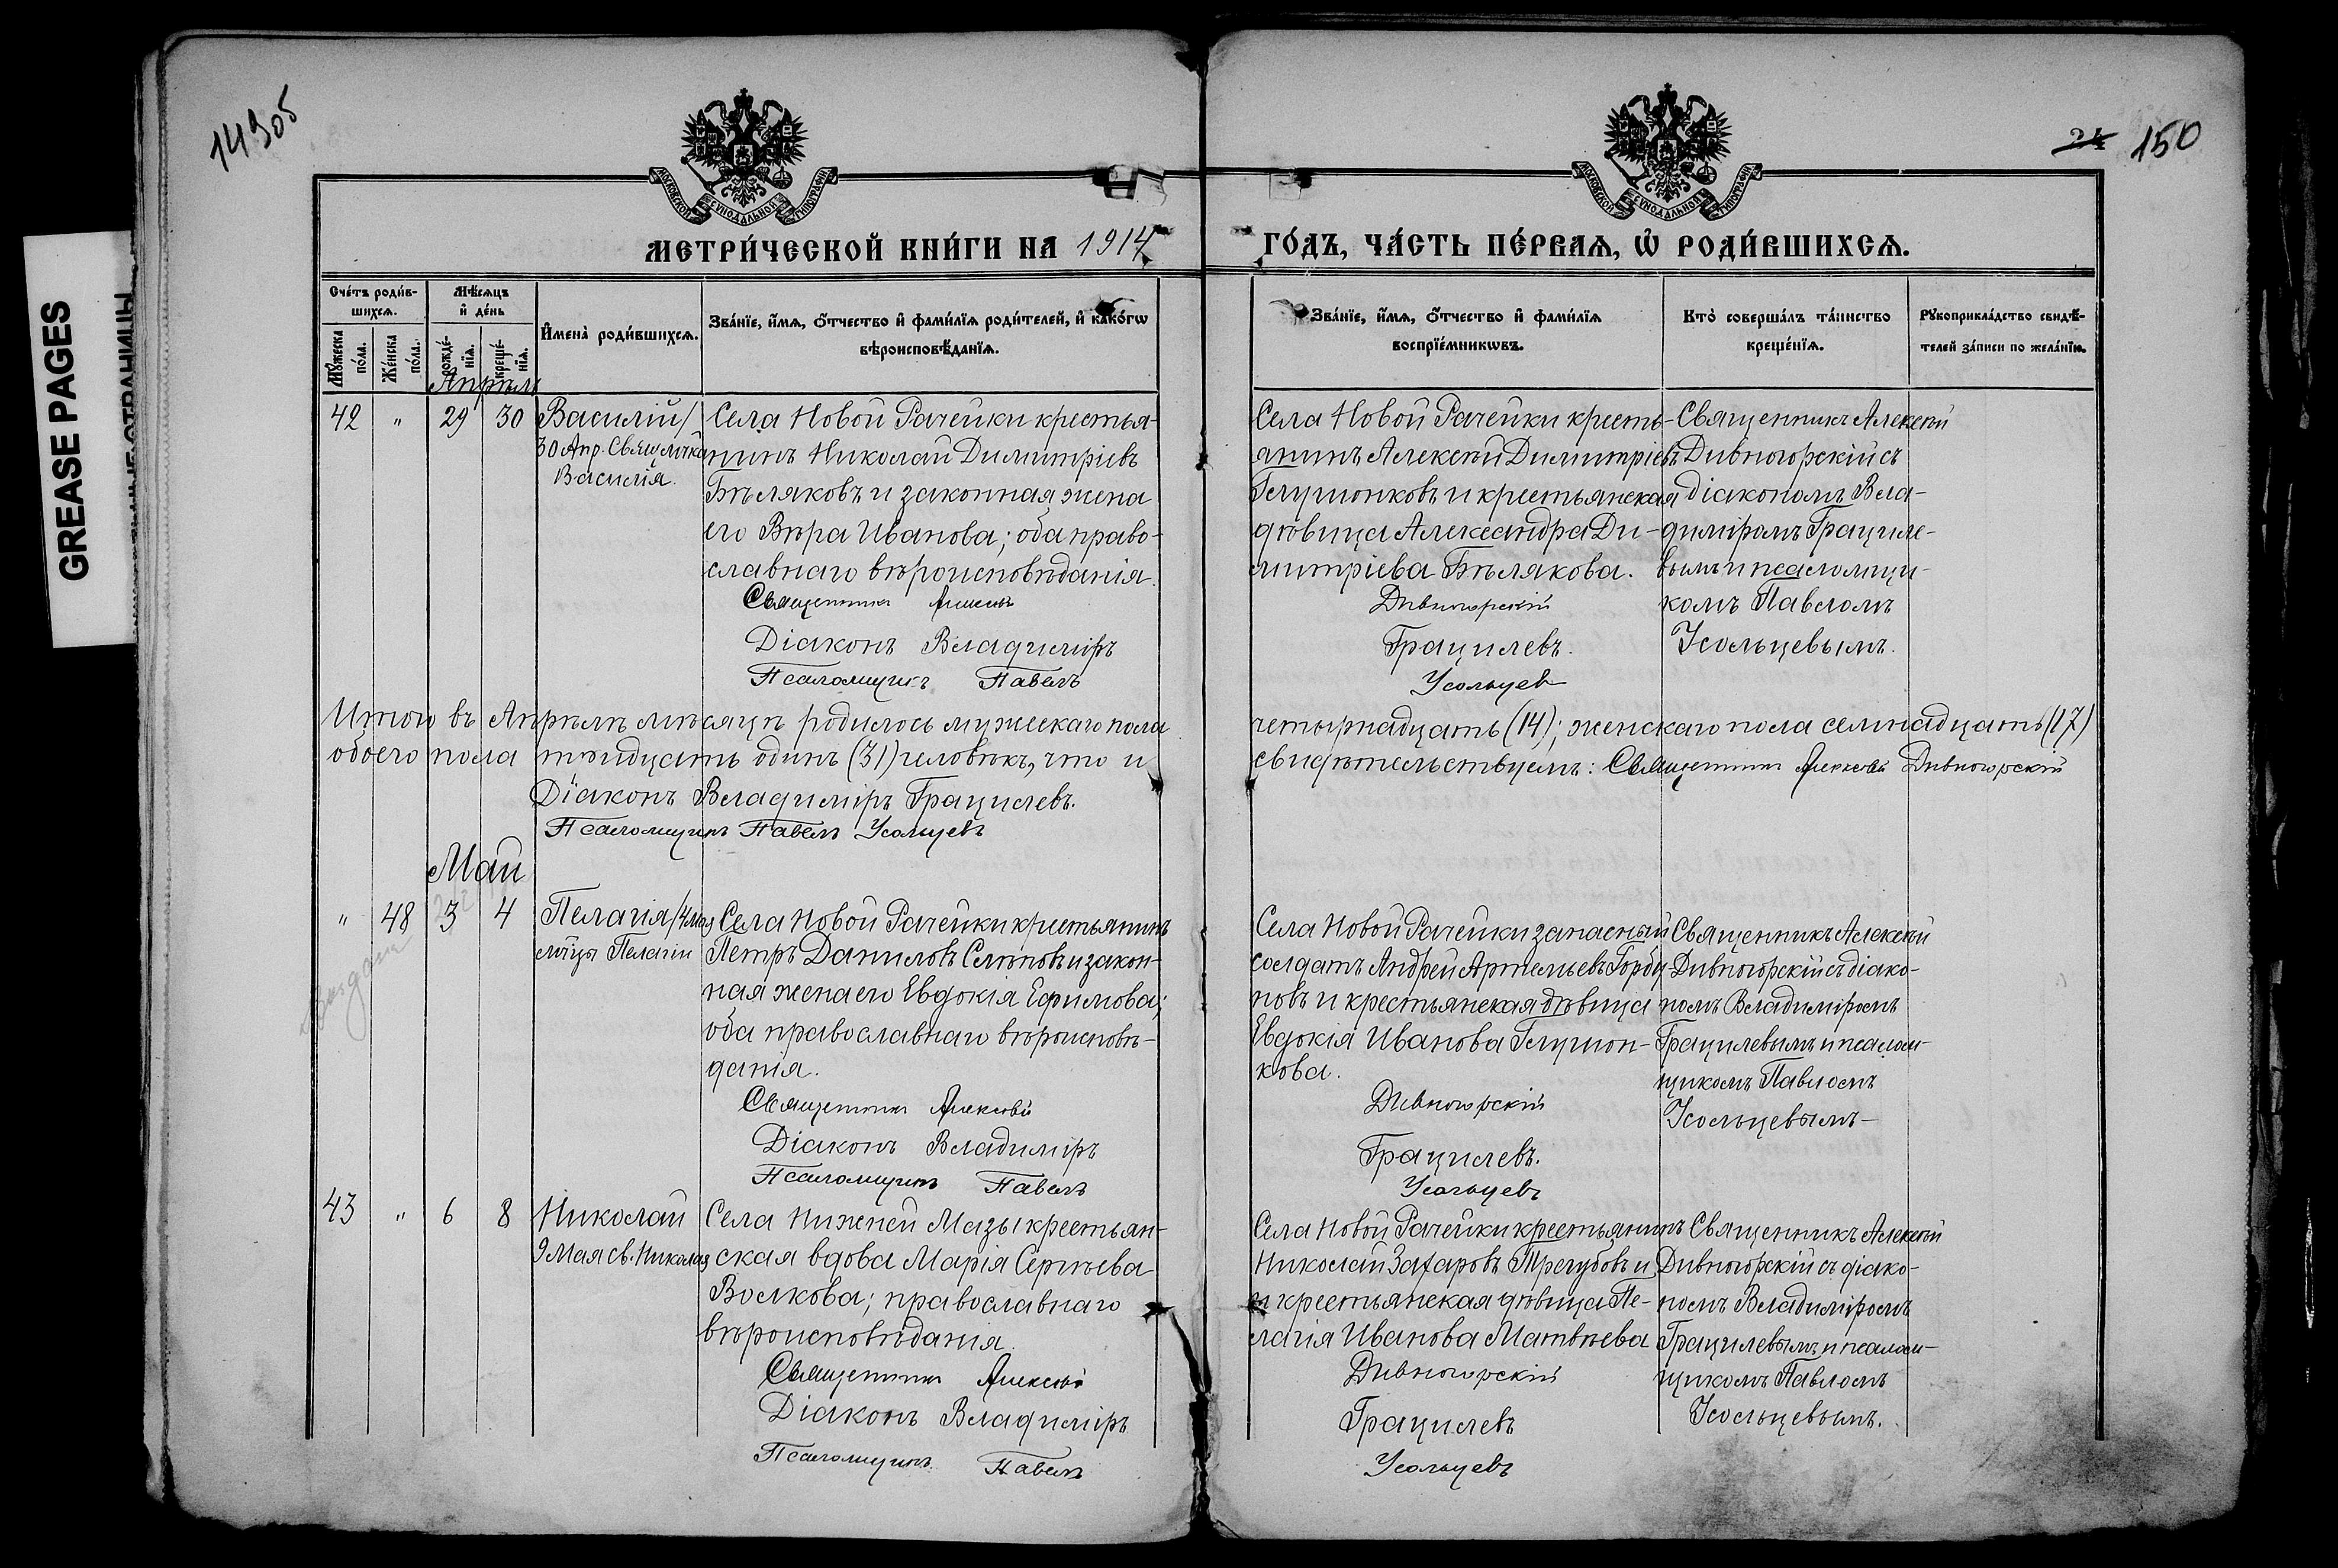 14905
24 150
GREASE PAGES
МОСКОВСКОЙ СѴНОДАЛЬНОЙ ТИПОГРАФІИ
МОСКОВСКОЙ СѴНОДАЛЬНОЙ ТИПОГРАФІИ
МЕТРИ́ЧЕСКОЙ КНИ́ГИ НА 1914 ГО́ДЪ, ЧА́СТЬ ПЕ́РВАЯ, Ѡ҆ РОДИ́ВШИХСЯ.
Сче́тъ роди́в-
шихся.
Му́жеска по́ла.
Же́нска по́ла.
Мѣ́сяцъ
и҆ де́нь
рожде́-
нїя.
креще́-
нїя.
И҆мена̀ роди́вшихся.
Зва́нїе, и҆́мя, ѻ҆́тчество и҆ фами́лїя роди́телей, и҆ како́гѡ
вѣроисповѣ́данїя.
Зва́нїе, и҆́мя, ѻ҆́тчество и҆ фами́лїя
воспрїе́мникѡвъ.
Кто̀ соверша́лъ та́инство
креще́нїя.
Рꙋкоприкла́дство свидѣ́-
телей за́писи по жела́нїю.
Апрѣль
42 " 29 30
Василій/
30 Апр. Свящмчка
Василія.
Села Новой Рачейки крестья-
нинъ Николай Димитріевъ
Бѣляковъ и законная жена
его Вѣра Иванова; оба право-
славнаго вѣроисповѣданія.
Священникъ Алексѣй
Діаконъ Владиміръ
Псаломщикъ Павелъ
Села Новой Рачейки кресть-
янинъ Алексѣй Димитріевъ
Глушонковъ и крестьянская
дѣвица Александра Ди-
митріева Бѣлякова.
Дивногорскій
Грацилевъ.
Усольцевъ
Священникъ Алексѣй
Дивногорскій съ
діакономъ Вла-
диміромъ Грациле-
вымъ и псаломщи-
комъ Павломъ
Усольцевымъ.
Итого въ Апрѣлѣ мѣсяцѣ родилось мужескаго пола четырнадцать (14); женскаго пола семнадцать (17)
обоего пола тридцать одинъ (31) человѣкъ, что и свидѣтельствуемъ: Священникъ Алексѣй Дивногорскій
Діаконъ Владиміръ Грацилевъ.
Псаломщикъ Павелъ Усольцевъ
Май
" 48 3 4
Пелагія/4 мая
мчцы Пелагіи
Села Новой Рачейки крестьянинъ
Петръ Даниловъ Слѣповъ и закон-
ная жена его Евдокія Ефимова;
оба православнаго вѣроисповѣ-
данія.
Священникъ Алексѣй
Діаконъ Владиміръ
Псаломщикъ Павелъ
Села Новой Рачейки запасный
солдатъ Андрей Артемьевъ Горбу-
новъ и крестьянская дѣвица
Евдокія Иванова Глушон-
кова.
Дивногорскій
Грацилевъ.
Усольцевъ
Священникъ Алексѣй
Дивногорскій съ діако-
номъ Владиміромъ
Грацилевымъ и псалом-
щикомъ Павломъ
Усольцевымъ-
43 " 6 8
Николай
9 Мая св. Николая
Села Нижней Мазы крестьян-
ская вдова Марія Сергѣева
Волкова; православнаго
вѣроисповѣданія.
Священникъ Алексѣй
Діаконъ Владиміръ
Псаломщикъ Павелъ
Села Новой Рачейки крестьянинъ
Николай Захаровъ Трегубовъ и
и крестьянская дѣвица Пе-
лагія Иванова Матвѣева
Дивногорскій
Грацилевъ
Усольцевъ
Священникъ Алексѣй
Дивногорскій съ діако-
номъ Владиміромъ
Грацилевымъ и псалом-
щикомъ Павломъ
Усольцевымъ.